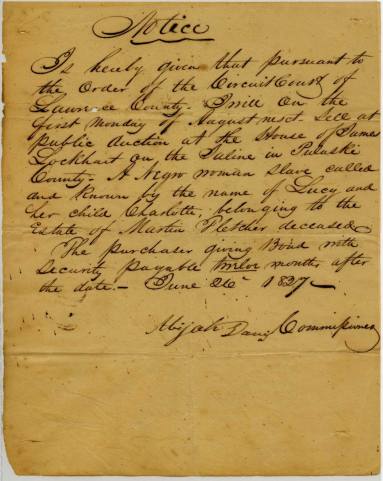 Notice
Is hereby given that pursuant to
the Order of the Circuit Court of
Lawrence County. I will On the
first Monday of August next Sell at
public auction at the House of James
Lockhart on the Saline in Pulaski
County. A Negro woman slave called
and known by the name of Lucy and
her child Charlotte, belonging to the
Estate of Martin Fletcher deceased
The purchaser giving Bond with
Security payable twelve months after
the date. — June 26 1827
Abijah Davis Commissioner